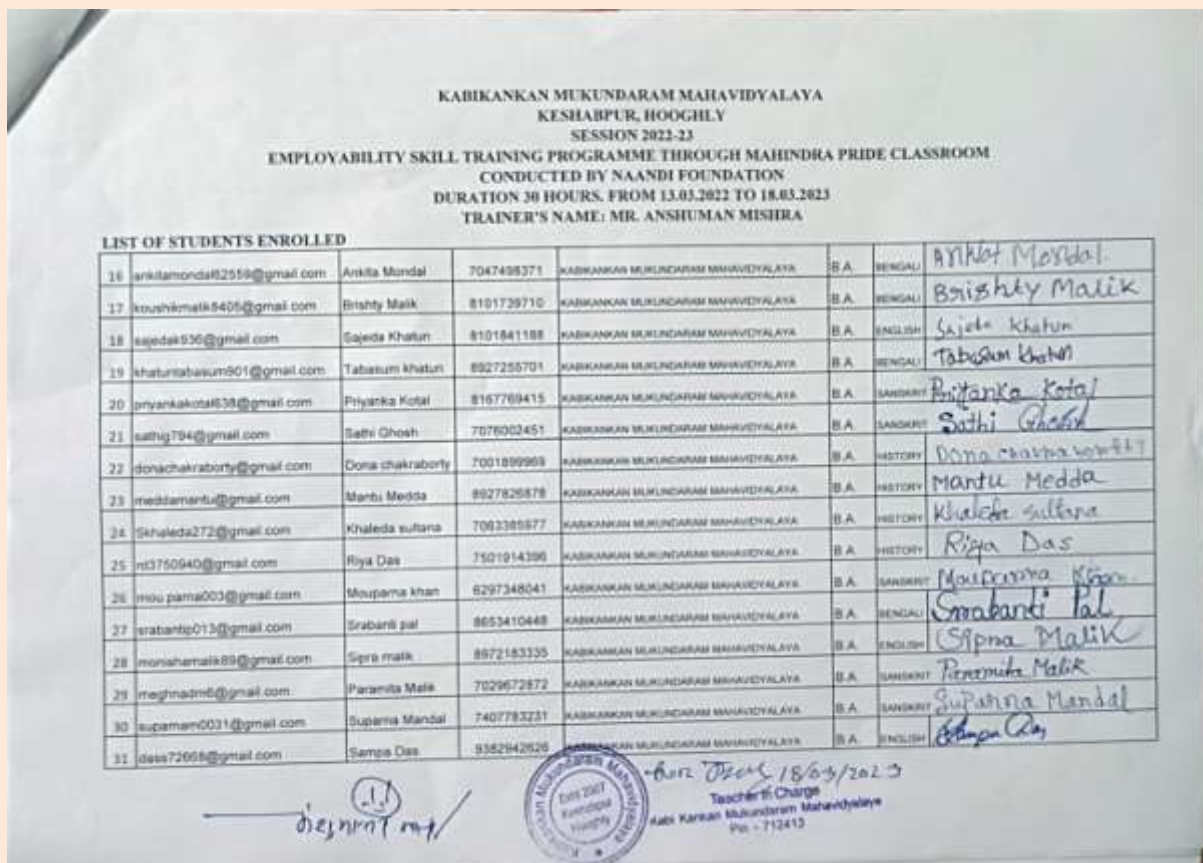 KABIKANKAN MUKUNDARAM MAHAVIDYALAYA
KESHABPUR, HOOGHLY
SESSION 2022-23
EMPLOYABILITY SKILL TRAINING PROGRAMME THROUGH MAHINDRA PRIDE CLASSROOM
CONDUCTED BY NAANDI FOUNDATION
DURATION 30 HOURS. FROM 13.03.2022 TO 18.03.2023
TRAINER'S NAME: MR. ANSHUMAN MISHRA
LIST OF STUDENTS ENROLLED
16 ankitamondal82559@gmail.com Ankita Mondal 7047498371 KABIKANKAN MUKUNDARAM MAHAVIDYALAYA B.A. BENGALI Mondal
17 koushikmalik8405@gmail.com Brishty Malik 8101739710 KABIKANKAN MUKUNDARAM MAHAVIDYALAYA B.A. BENGALI Brishty Malik
18 sajedak936@gmail.com Sajeda Khatun 8101841188 KABIKANKAN MUKUNDARAM MAHAVIDYALAYA B.A. ENGLISH Sajeda Khatun
19 khatuntabasum901@gmail.com Tabasum khatun 8927255701 KABIKANKAN MUKUNDARAM MAHAVIDYALAYA B.A. BENGALI Tabasum Khatun
20 priyankakotal638@gmail.com Priyanka Kotal 8167769415 KABIKANKAN MUKUNDARAM MAHAVIDYALAYA B.A. SANSKRIT Priyanka Kotal
21 sathig794@gmail.com Sathi Ghosh 7076002451 KABIKANKAN MUKUNDARAM MAHAVIDYALAYA B.A. SANSKRIT Sathi Ghosh
22 donachakraborty@gmail.com Dona chakraborty 7001899969 KABIKANKAN MUKUNDARAM MAHAVIDYALAYA B.A. HISTORY Dona
23 meddamantu@gmail.com Mantu Medda 8927826878 KABIKANKAN MUKUNDARAM MAHAVIDYALAYA B.A. HISTORY Mantu Medda
24 Skhaleda272@gmail.com Khaleda sultana 7063385977 KABIKANKAN MUKUNDARAM MAHAVIDYALAYA B.A. HISTORY Khaleda sultana
25 rd3750940@gmail.com Riya Das 7501914396 KABIKANKAN MUKUNDARAM MAHAVIDYALAYA B.A. HISTORY Riya Das
26 mou parna003@gmail.com Mouparna khan 6297348041 KABIKANKAN MUKUNDARAM MAHAVIDYALAYA B.A. SANSKRIT Mouparna Khan
27 srabantip013@gmail.com Srabanti pal 8653410448 KABIKANKAN MUKUNDARAM MAHAVIDYALAYA B.A. BENGALI Srabanti Pal
28 monishamalik89@gmail.com Sipra malik 8972183335 KABIKANKAN MUKUNDARAM MAHAVIDYALAYA B.A. ENGLISH Sipra Malik
29 meghnadm6@gmail.com Paramita Malik 7029672872 KABIKANKAN MUKUNDARAM MAHAVIDYALAYA B.A. SANSKRIT Paramita Malik
30 suparnam0031@gmail.com Suparna Mandal 7407783231 KABIKANKAN MUKUNDARAM MAHAVIDYALAYA B.A. SANSKRIT Suparna Mandal
31 dass72668@gmail.com Sampa Das 9382942626 KABIKANKAN MUKUNDARAM MAHAVIDYALAYA B.A. ENGLISH Sampa Das
18/03/2023
Teacher In Charge
Kabi Kankan Mukundaram Mahavidyalaya
Pin - 712413
Kabikankan Mukundaram Mahavidyalaya
Estd 2007
Keshabpur
Hooghly